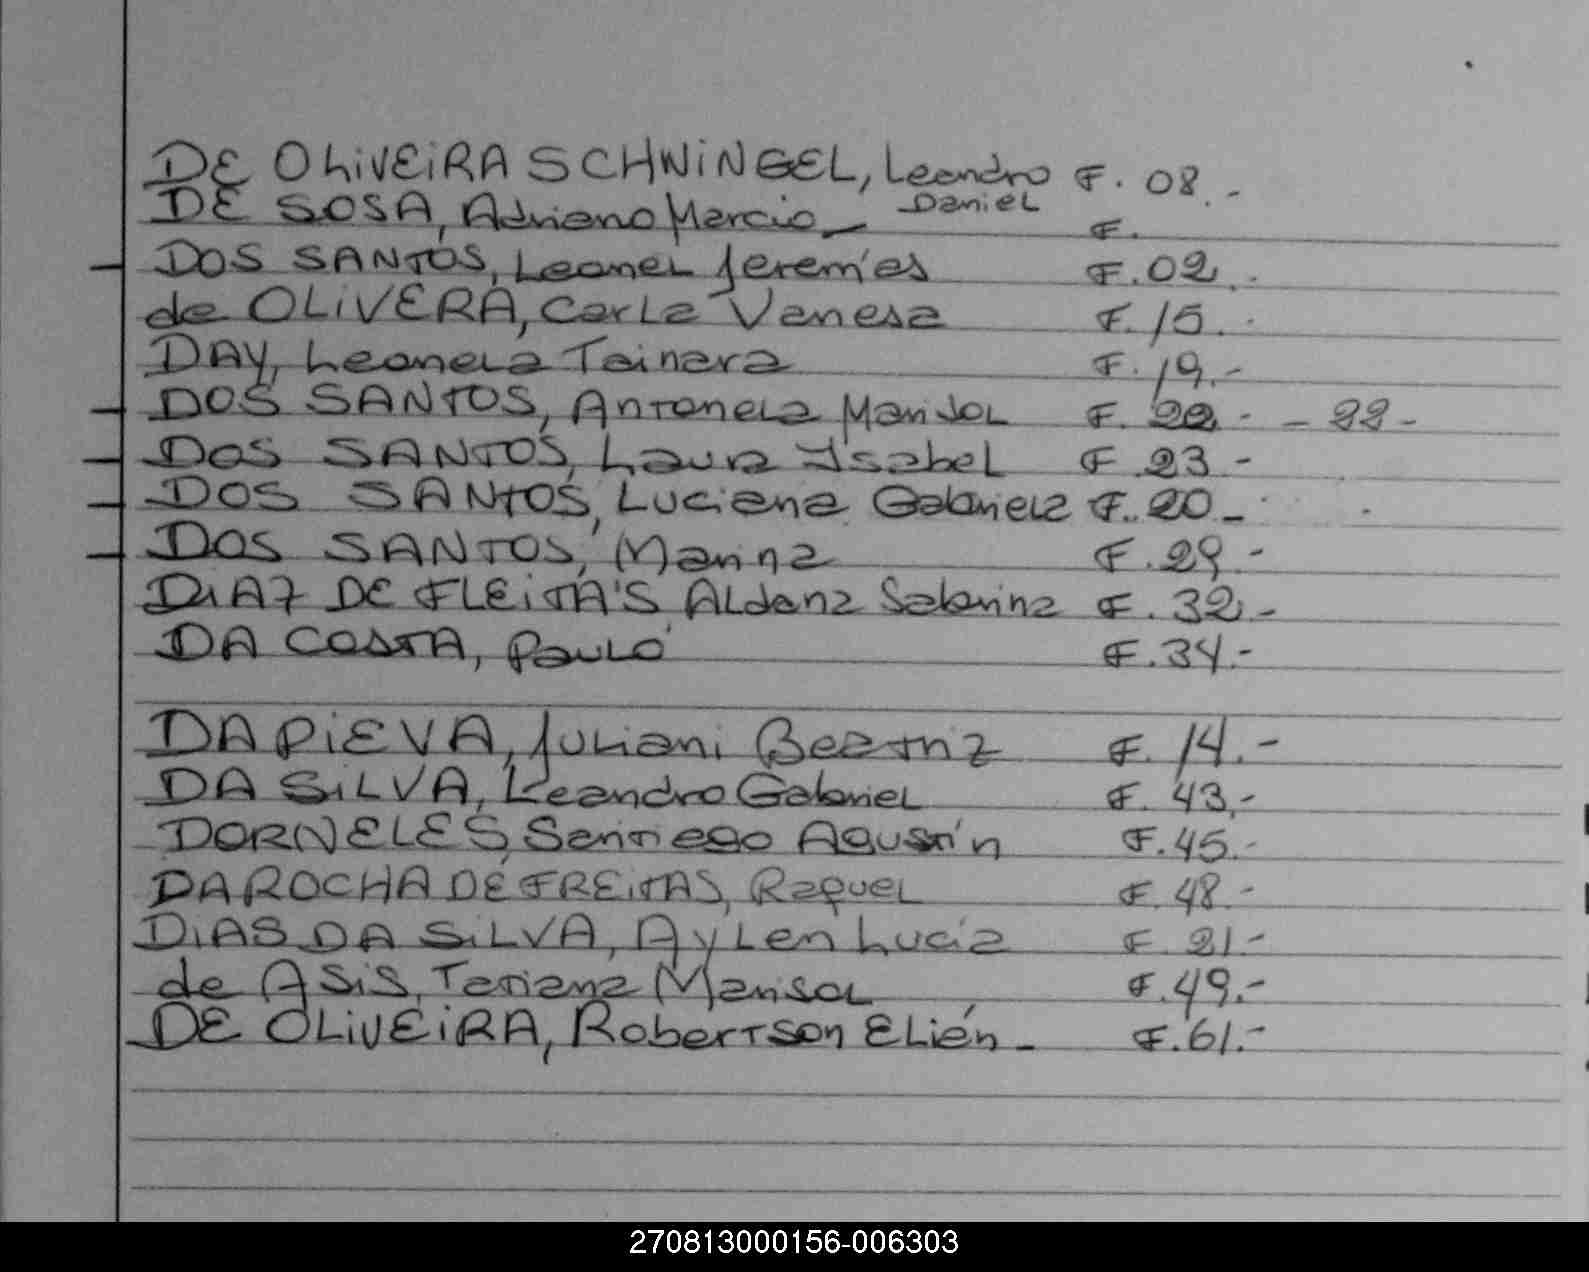 DE OLIVEIRA SCHWINGEL, Leandro F. 08.-
Daniel
DE SOSA, Adriano Marcio - F.
DOS SANTOS, Leonel Jeremías F. 02.-
de OLIVERA, Carla Vanesa F. 15.-
DAY, Leonela Tainara F. 19.-
DOS SANTOS, Antonela Marisol F. 22.- - 22-
DOS SANTOS, Laura Isabel F 23-
DOS SANTOS, Luciana Gabriela F. 20-
DOS SANTOS, Marina F. 29.-
DIAZ DE FLEITA'S Aldana Sabrina F. 32.-
DA COSTA, Paulo F. 34.-
DA PIEVA, Juliani Beatriz F. 14.-
DA SILVA, Leandro Gabriel F. 43.-
DORNELES, Santiago Agustín F. 45.-
DA ROCHA DE FREITAS, Raquel F. 48.-
DIAS DA SILVA, Aylen Lucía F. 21-
de ASIS, Tatiana Marisol F. 49.-
DE OLIVEIRA, Robertson Elién - F. 61.-
270813000156-006303